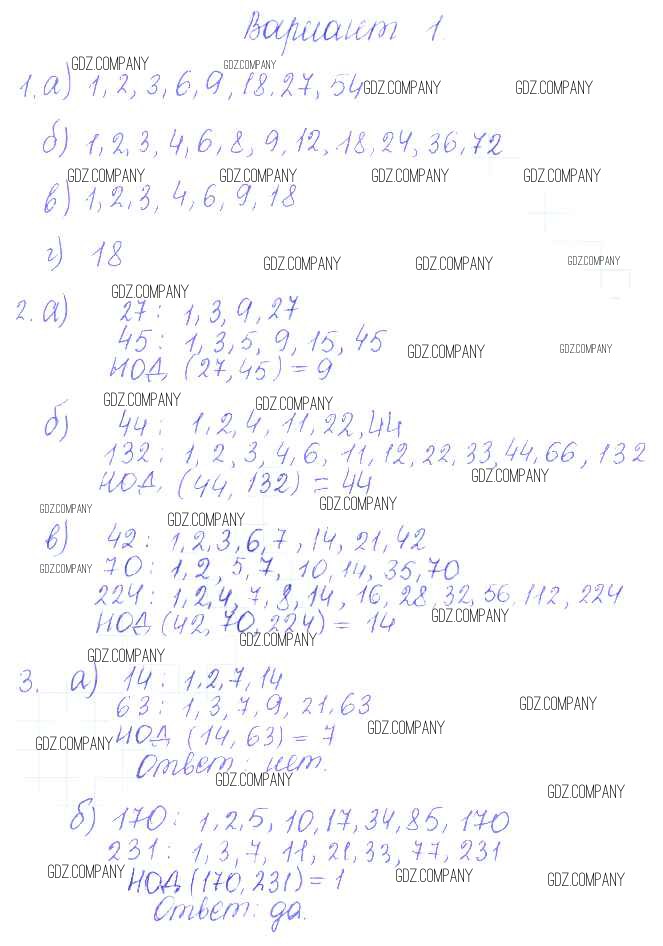 Вариант 1.
GDZ.COMPANY GDZ.COMPANY
1. а) 1, 2, 3, 6, 9, 18. 27, 54 GDZ.COMPANY GDZ.COMPANY
б) 1, 2, 3, 4, 6, 8, 9, 12, 18, 24, 36, 72
GDZ.COMPANY GDZ.COMPANY GDZ.COMPANY GDZ.COMPANY
в) 1, 2, 3, 4, 6, 9, 18
г) 18
GDZ.COMPANY GDZ.COMPANY GDZ.COMPANY
GDZ.COMPANY
2. а) 27: 1, 3, 9, 27
45: 1, 3, 5, 9, 15, 45
GDZ.COMPANY GDZ.COMPANY
НОД (27, 45) = 9
GDZ.COMPANY GDZ.COMPANY
б) 44: 1, 2, 4, 11, 22, 44
132: 1, 2, 3, 4, 6, 11, 12, 22, 33, 44, 66, 132
GDZ.COMPANY
НОД (44, 132) = 44
GDZ.COMPANY GDZ.COMPANY GDZ.COMPANY
в) 42: 1, 2, 3, 6, 7, 14, 21, 42
GDZ.COMPANY 70: 1, 2, 5, 7, 10, 14, 35, 70
224: 1, 2, 4, 7, 8, 14, 16, 28, 32, 56, 112, 224
GDZ.COMPANY
НОД (42, 70, 224) = 14
GDZ.COMPANY
GDZ.COMPANY
3. а) 14: 1, 2, 7, 14
63: 1, 3, 7, 9, 21, 63
GDZ.COMPANY
GDZ.COMPANY НОД (14, 63) = 7 GDZ.COMPANY
Ответ: нет.
GDZ.COMPANY GDZ.COMPANY
б) 170: 1, 2, 5, 10, 17, 34, 85, 170
231: 1, 3, 7, 11, 21, 33, 77, 231
GDZ.COMPANY НОД (170, 231) = 1 GDZ.COMPANY GDZ.COMPANY
Ответ: да.